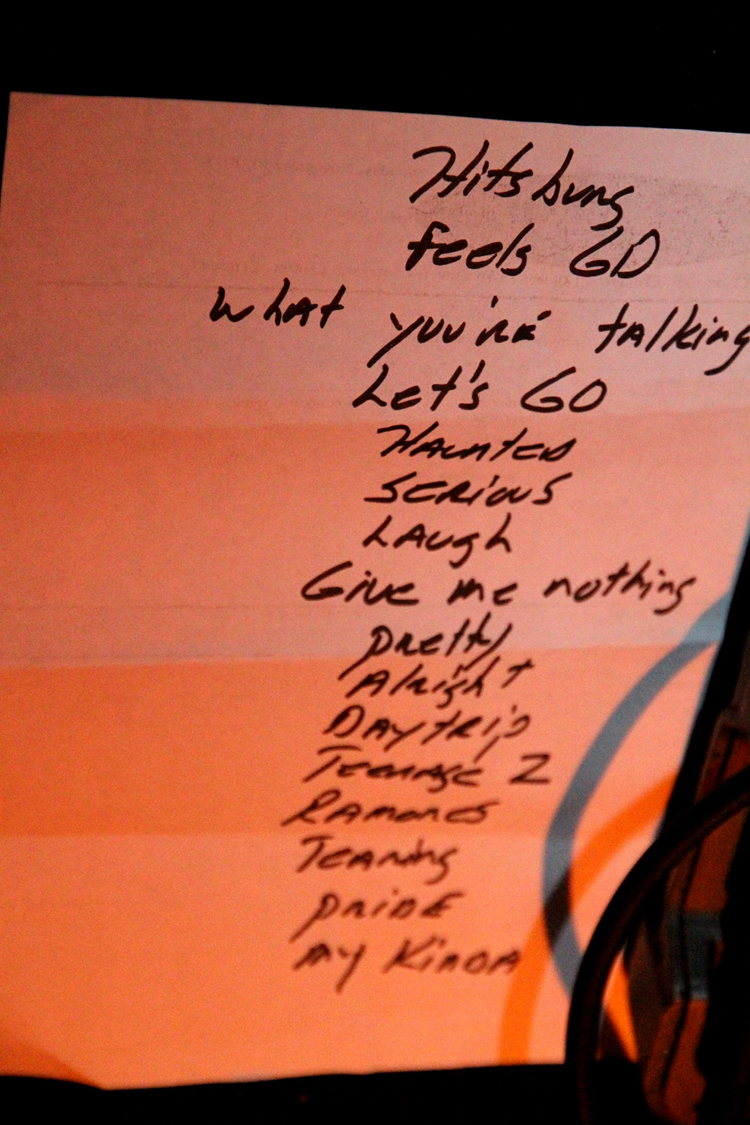 Hitsburg
Feels GD
What you're talking
Let's GO
Haunted
Serious
Laugh
Give me nothing
Pretty
Alright
Daytrip
Teenage 2
Ramones
Tearing
Pride
My Kinda